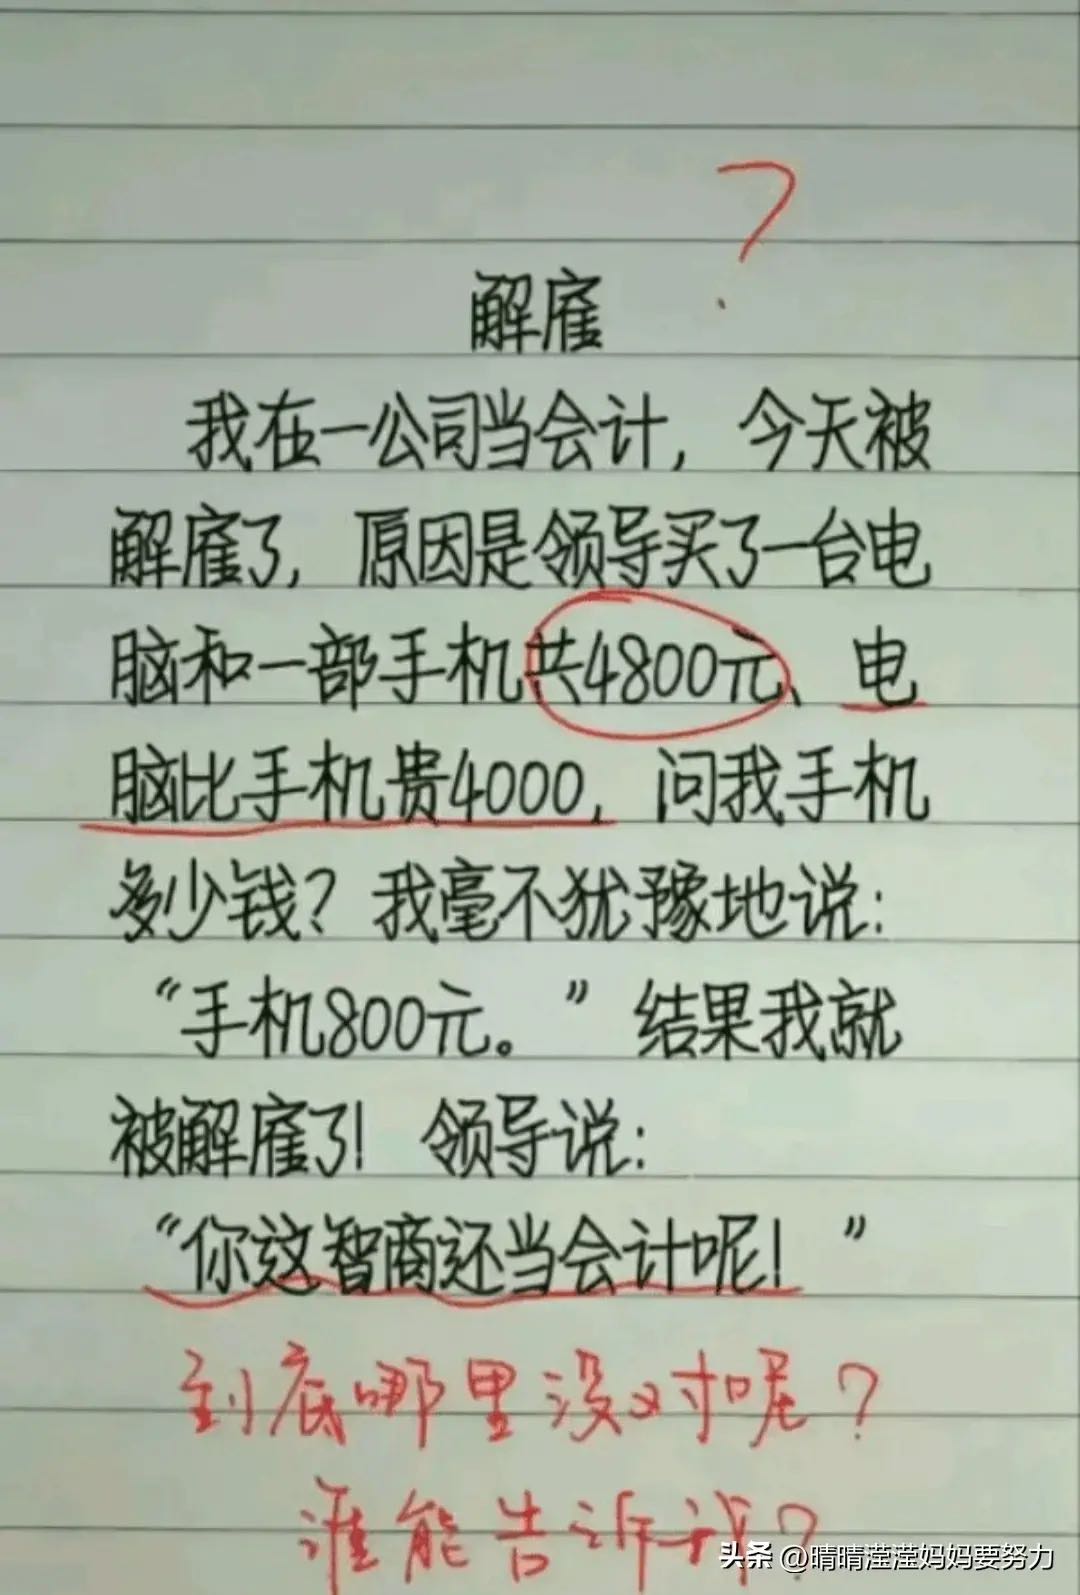 ?
解雇
我在一公司当会计，今天被
解雇了，原因是领导买了一台电
脑和一部手机共4800元、电
脑比手机贵4000，问我手机
多少钱？我毫不犹豫地说：
“手机800元。”结果我就
被解雇了！领导说：
“你这智商还当会计呢！”
到底哪里没对呢？
谁能告诉我？
头条 @晴晴滢滢妈妈要努力